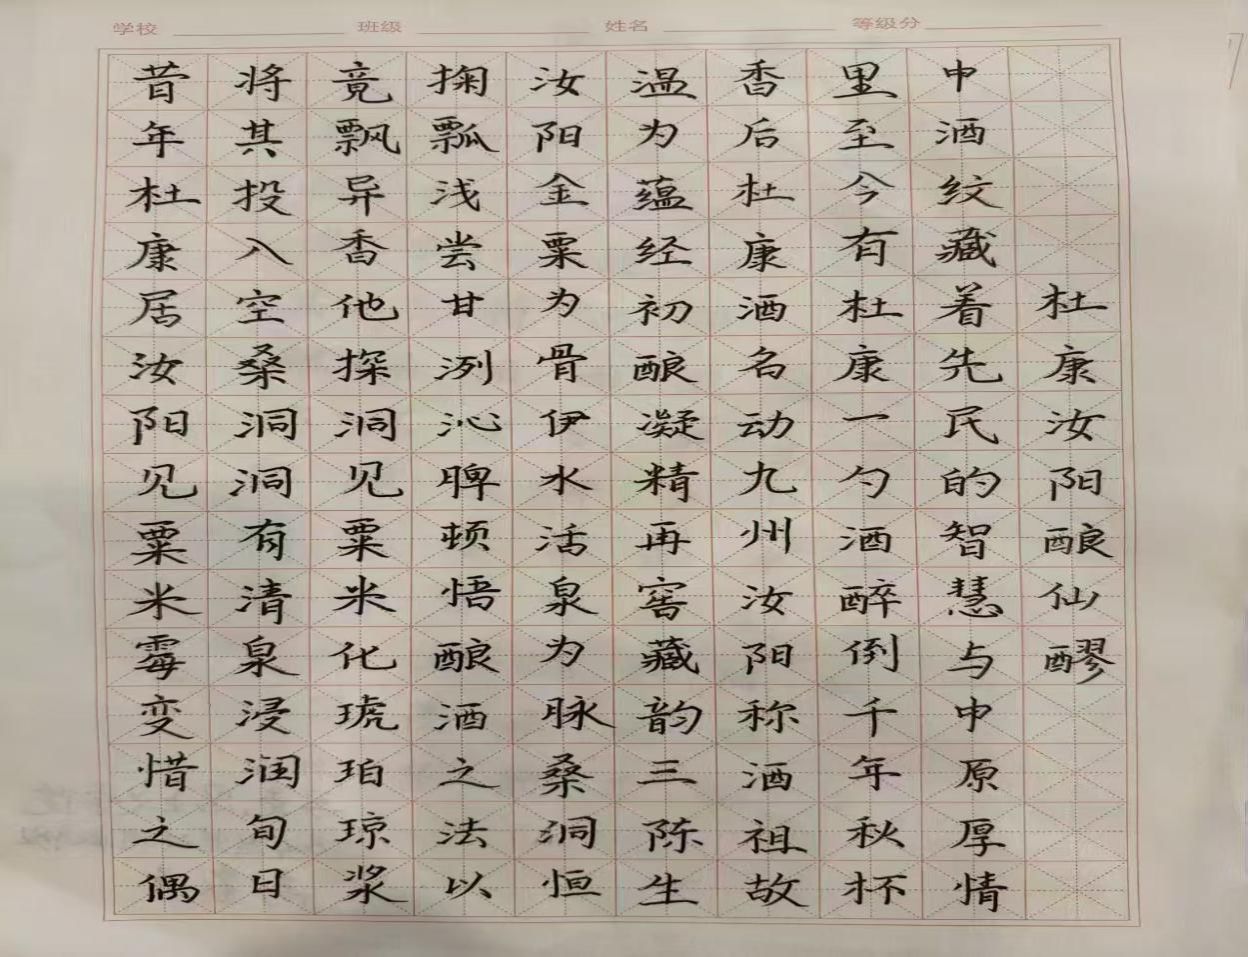 学校 班级 姓名 等级分
昔年杜康居汝阳见粟米霉变惜之偶
将其投入空桑洞洞有清泉浸润旬日
竟飘异香他探洞见粟米化琥珀琼浆
掬瓢浅尝甘洌沁脾顿悟酿酒之法以
汝阳金粟为骨伊水活泉为脉桑洞恒
温为蕴经初酿凝精再窖藏韵三陈生
香后杜康酒名动九州汝阳称酒祖故
里至今有杜康一勺酒醉倒千年秋杯
中酒纹藏着先民的智慧与中原厚情
杜康汝阳酿仙醪